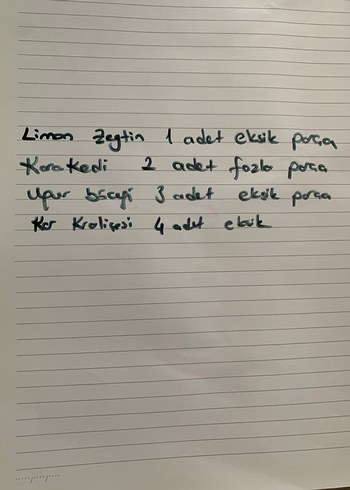 Liman Zeytin 1 adet eksik parça
Kara Kedi 2 adet fazla parça
Uğur böceği 3 adet eksik parça
Kar Kraliçesi 4 adet eksik